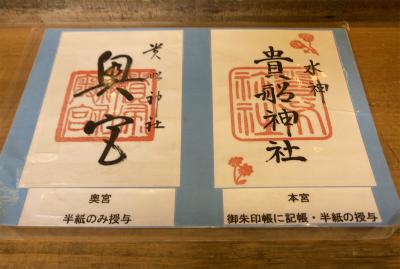 奥宮
貴船神社
奥宮
半紙のみ授与
水神
貴船神社
本宮
御朱印帳に記帳・半紙の授与